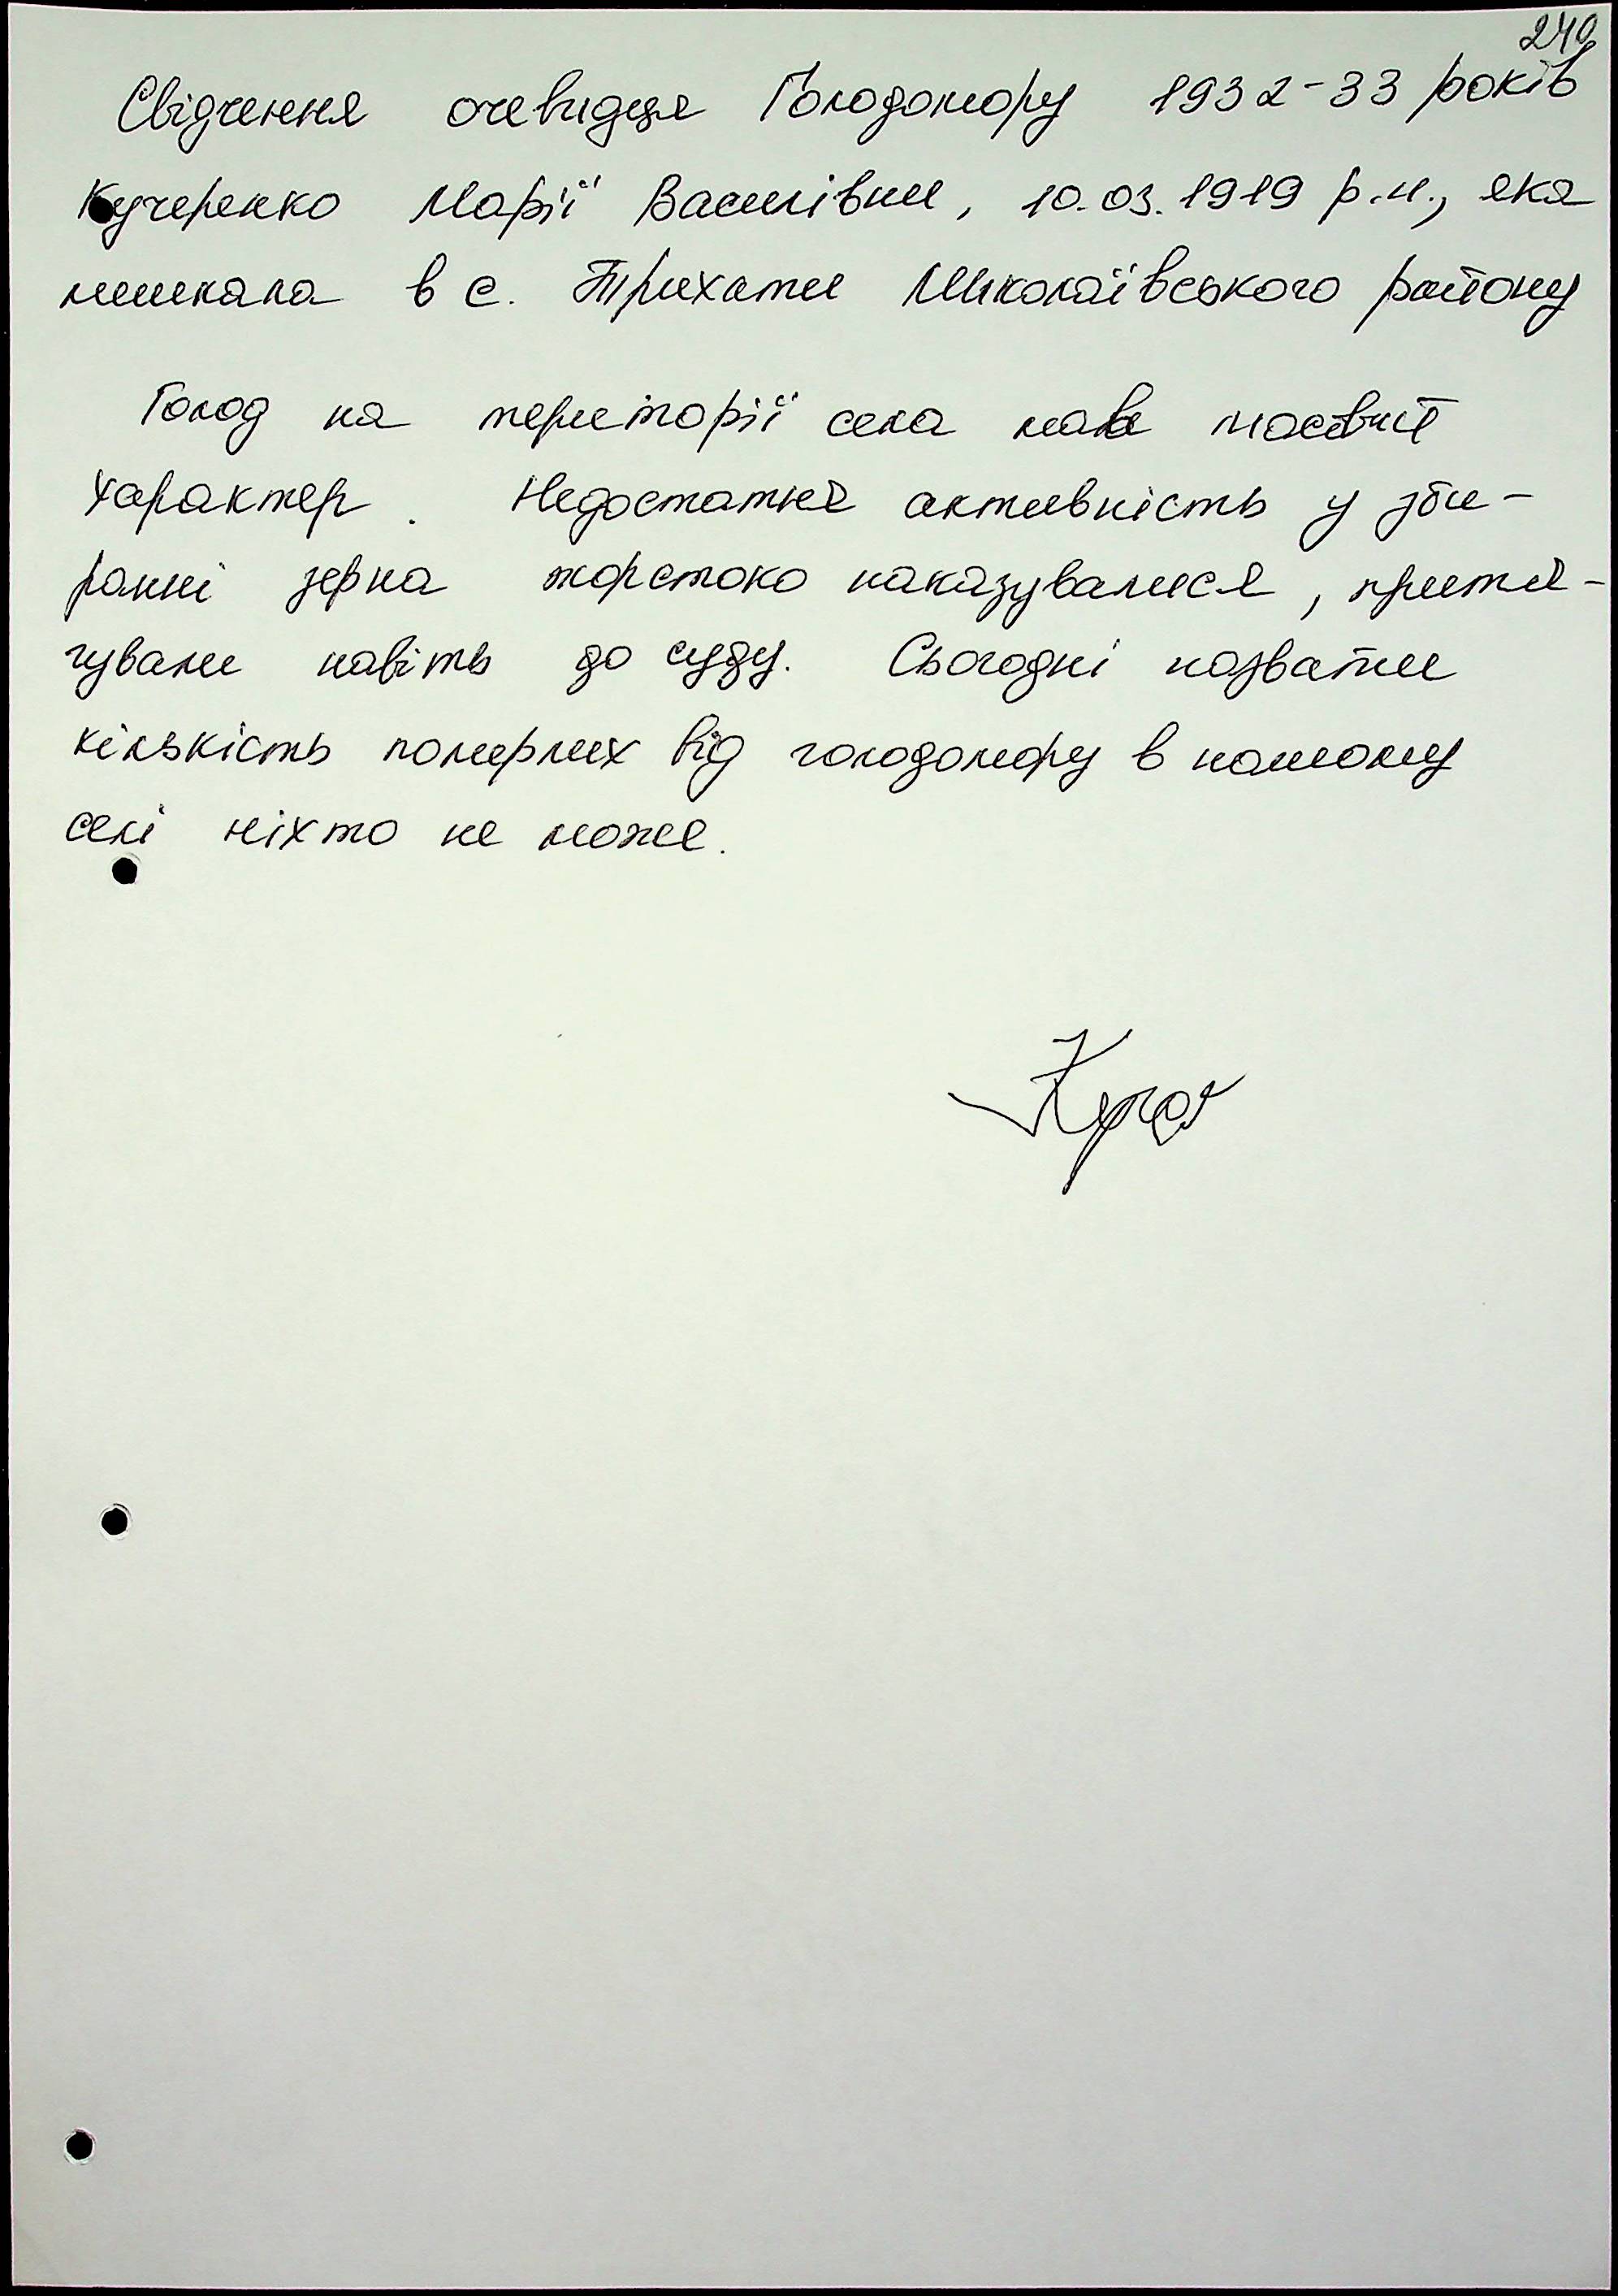 240
Свідчення очевидця Голодомору 1932-33 років
Кучеренко Марії Василівни, 10.03.1919 р.н., яка
мешкала в с. Трихати Миколаївського району
Голод на територіїї села мав масовий
характер. Недостатня активність у зби-
ранні зерна жорстоко наказувалися, притя-
гували навіть до суду. Сьогодні назвати
кількість померлих від голодомору в нашому
селі ніхто не може.